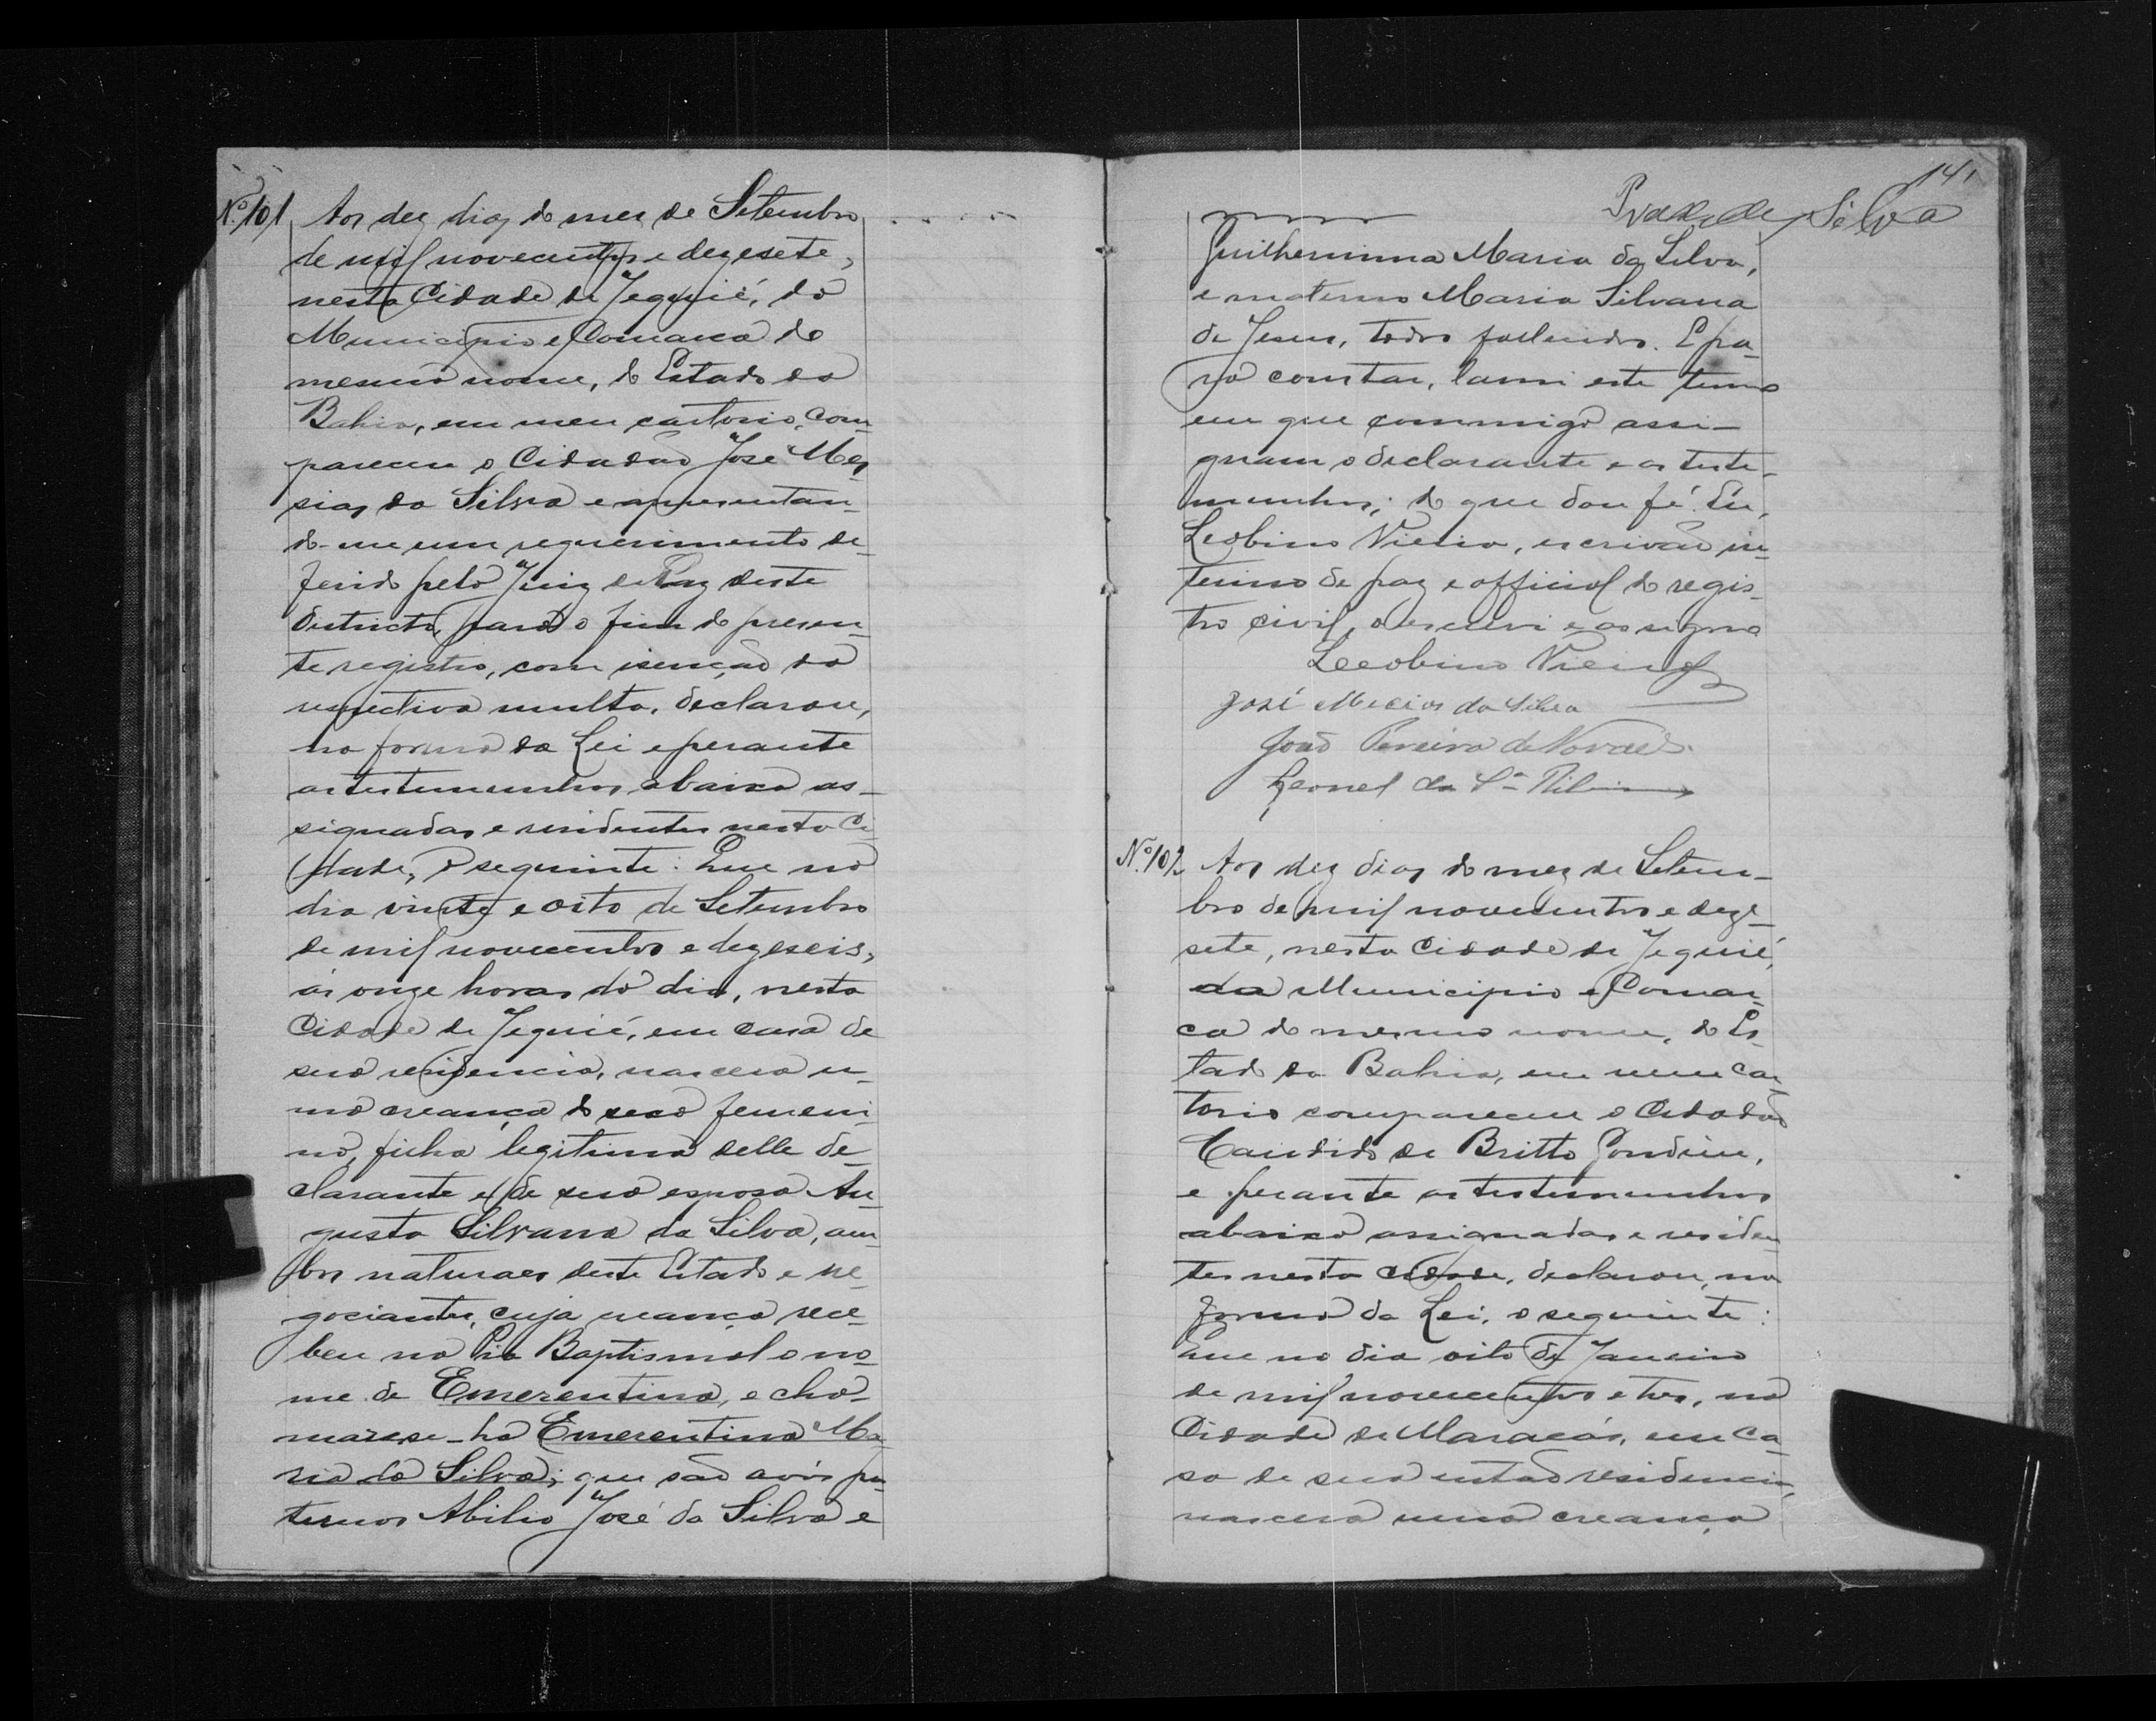 Nº 101 Aos dez dias do mez de Setembro
de mil novecentos e dezesete,
nesta Cidade de Jequié, do
Municipio e Comarca do
mesmo nome, do Estado da
Bahia, em meu cartorio, com-
pareceu o Cidadão José Mes
sias da Silva e apresentan-
do-me um requerimento de-
ferido pelo Juiz de Paz deste
districto, para o fim do presen-
te registro, com isenção da
respectiva multa, declarou,
na forma da Lei e perante
as testemunhas abaixo as-
signadas e residentes nesta Ci
dade, o seguinte: Que no
dia vinte e oito de Setembro
de mil novecentos e dezeseis,
ás onze horas do dia, nesta
Cidade de Jequié, em casa de
sua residencia, nascera u-
ma creança do sexo femeni-
no, filha legitima delle de-
clarante e de sua esposa Au-
gusta Silvana da Silva, am-
bos naturaes deste Estado e ne-
gociantes, cuja creança rece-
beu na Pia Baptismal o no-
me de Emerentina, e cha-
mar-se-ha Emerentina Ma-
ria da Silva; que são avós pa-
ternos Abilio José da Silva e
141
Silva
Guilhermina Maria da Silva,
e materno Maria Silvana
de Jesus, todos fallecidos. E pa-
ra constar, lavrei este termo
em que commigo assi-
gnam o declarante e as teste-
munhas; do que dou fé. Eu,
Leobino Vieira, escrivão in-
terino de paz e official do regis-
tro civil, o escrevi e assigno
Leobino Vieira
José Mecias da Silva
João Pereira de Novaes.
Leonel da Sª Ribeiro
Nº 102 Aos dez dias do mez de Setem-
bro de mil novecentos e deze-
sete, nesta Cidade de Jequié,
da Municipio e Comar-
ca do mesmo nome, do Es-
tado da Bahia, em meu car
torio compareceu o Cidadão
Candido de Britto Gondim,
e perante as testemunhas
abaixo assignadas e residen-
tes nesta cidade, declarou, na
forma da Lei, o seguinte:
Que no dia oito de Janeiro
de mil novecentos e tres, na
Cidade de Maracás, em ca-
sa de sua então residencia,
nascera uma creança